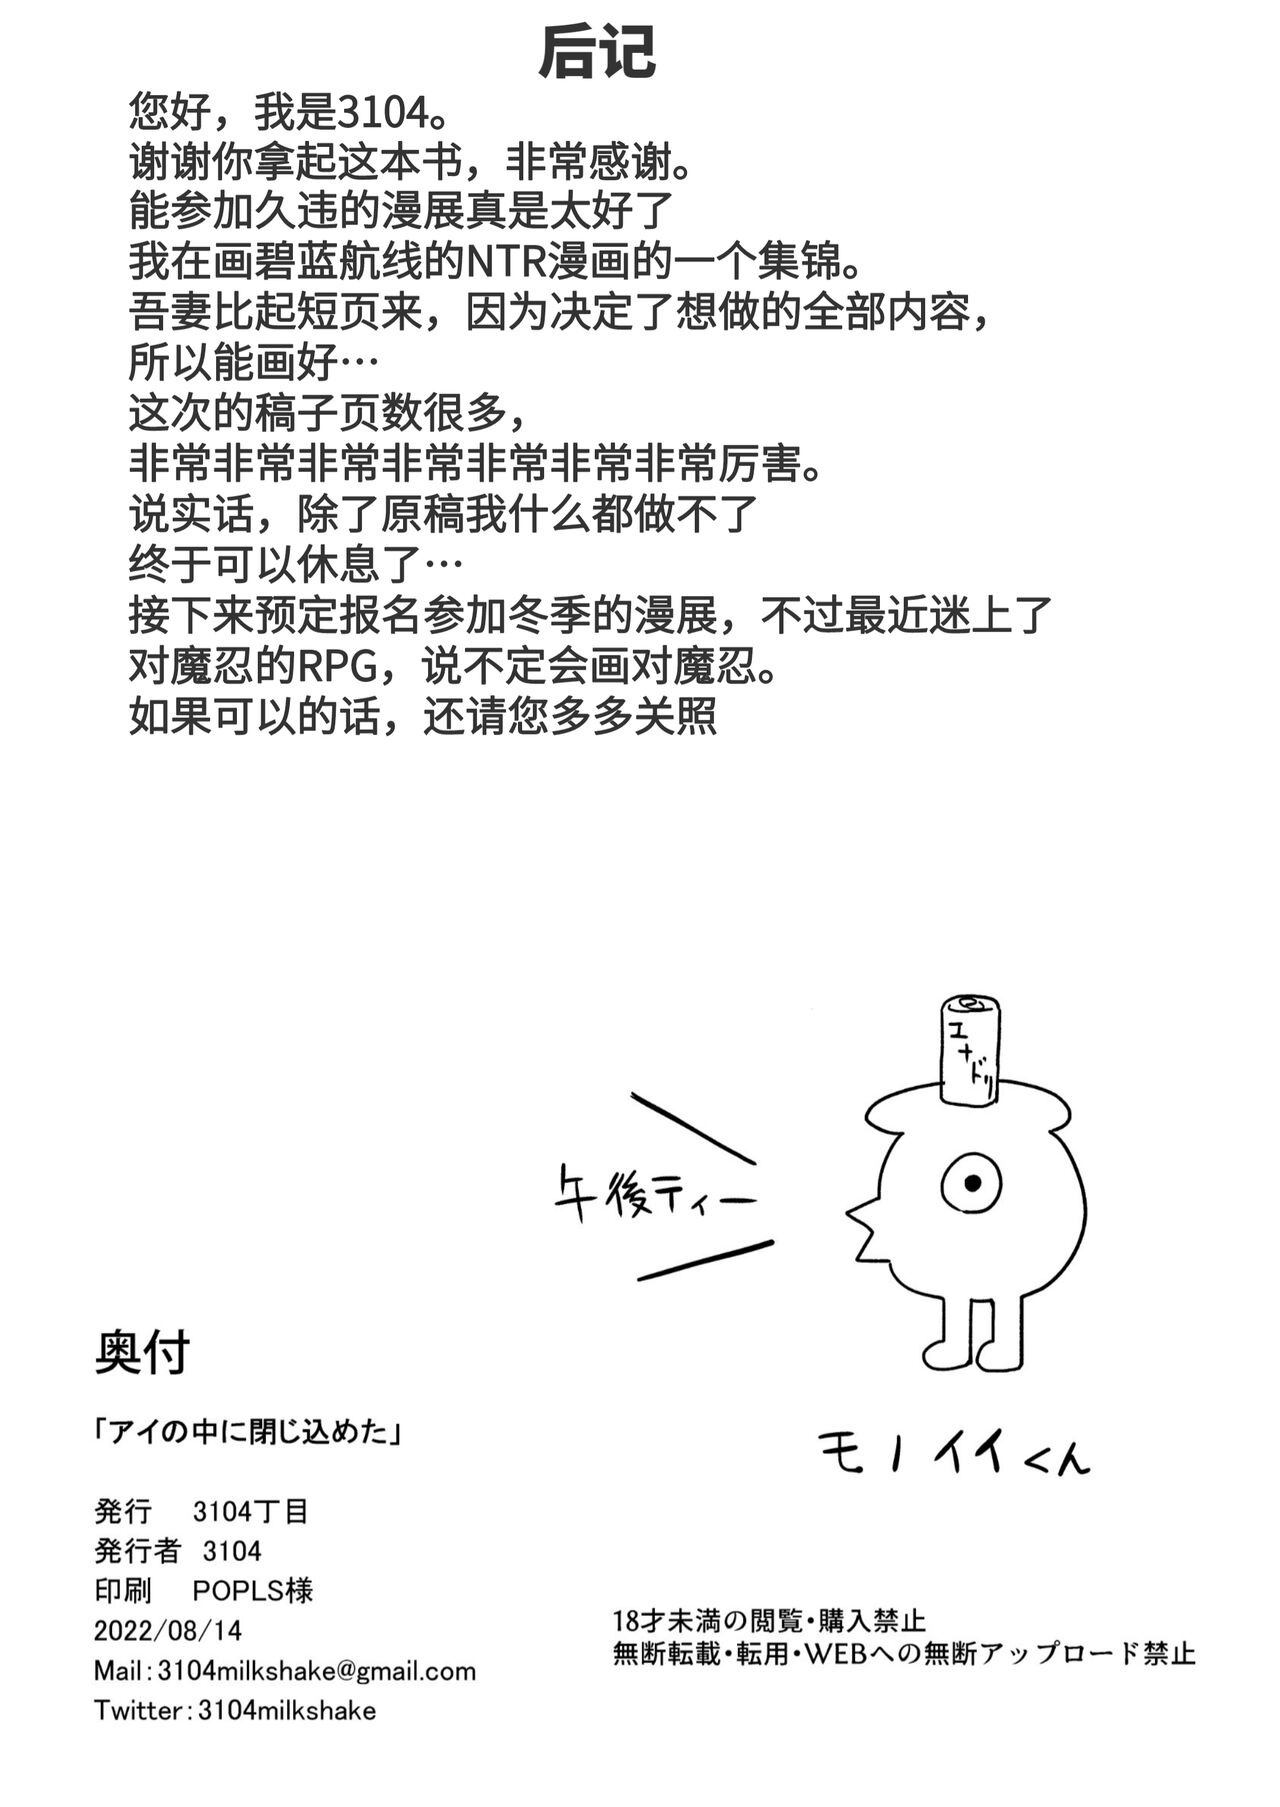 后记
您好，我是3104。
谢谢你拿起这本书，非常感谢。
能参加久违的漫展真是太好了
我在画碧蓝航线的NTR漫画的一个集锦。
吾妻比起短页来，因为决定了想做的全部内容，
所以能画好…
这次的稿子页数很多，
非常非常非常非常非常非常非常厉害。
说实话，除了原稿我什么都做不了
终于可以休息了…
接下来预定报名参加冬季的漫展，不过最近迷上了
对魔忍的RPG，说不定会画对魔忍。
如果可以的话，还请您多多关照
エナドリ
午後ティー
モノイイくん
奥付
「アイの中に閉じ込めた」
発行 3104丁目
発行者 3104
印刷 POPLS様
2022/08/14
Mail：3104milkshake@gmail.com
Twitter：3104milkshake
18才未満の閲覧・購入禁止
無断転載・転用・WEBへの無断アップロード禁止